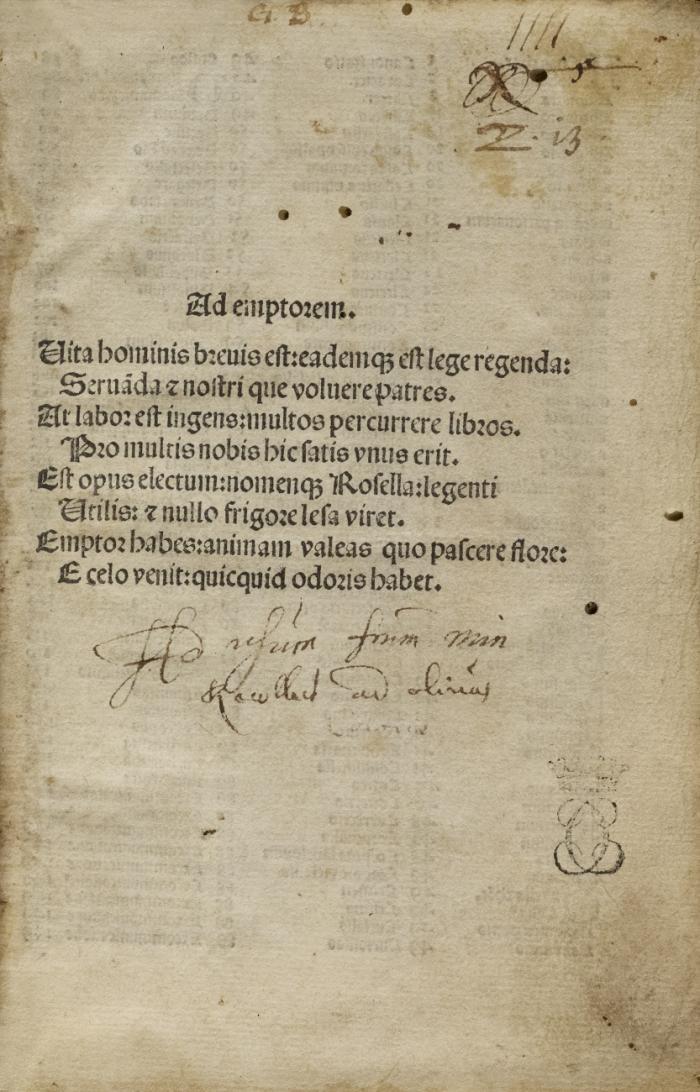 G. B
Z. 13
Ad emptorem.
Uita hominis breuis est:eademqꝫ est lege regenda:
Seruāda ⁊ nostri que voluere patres.
At labor est ingens:multos percurrere libros.
Pro multis nobis hic satis vnus erit.
Est opus electum:nomenqꝫ Rosella:legenti
Utilis: ⁊ nullo frigore lesa viret.
Emptor habes:animam valeas quo pascere flore:
E celo venit:quicquid odoris habet.
Ad usum
Recollect ad olivas